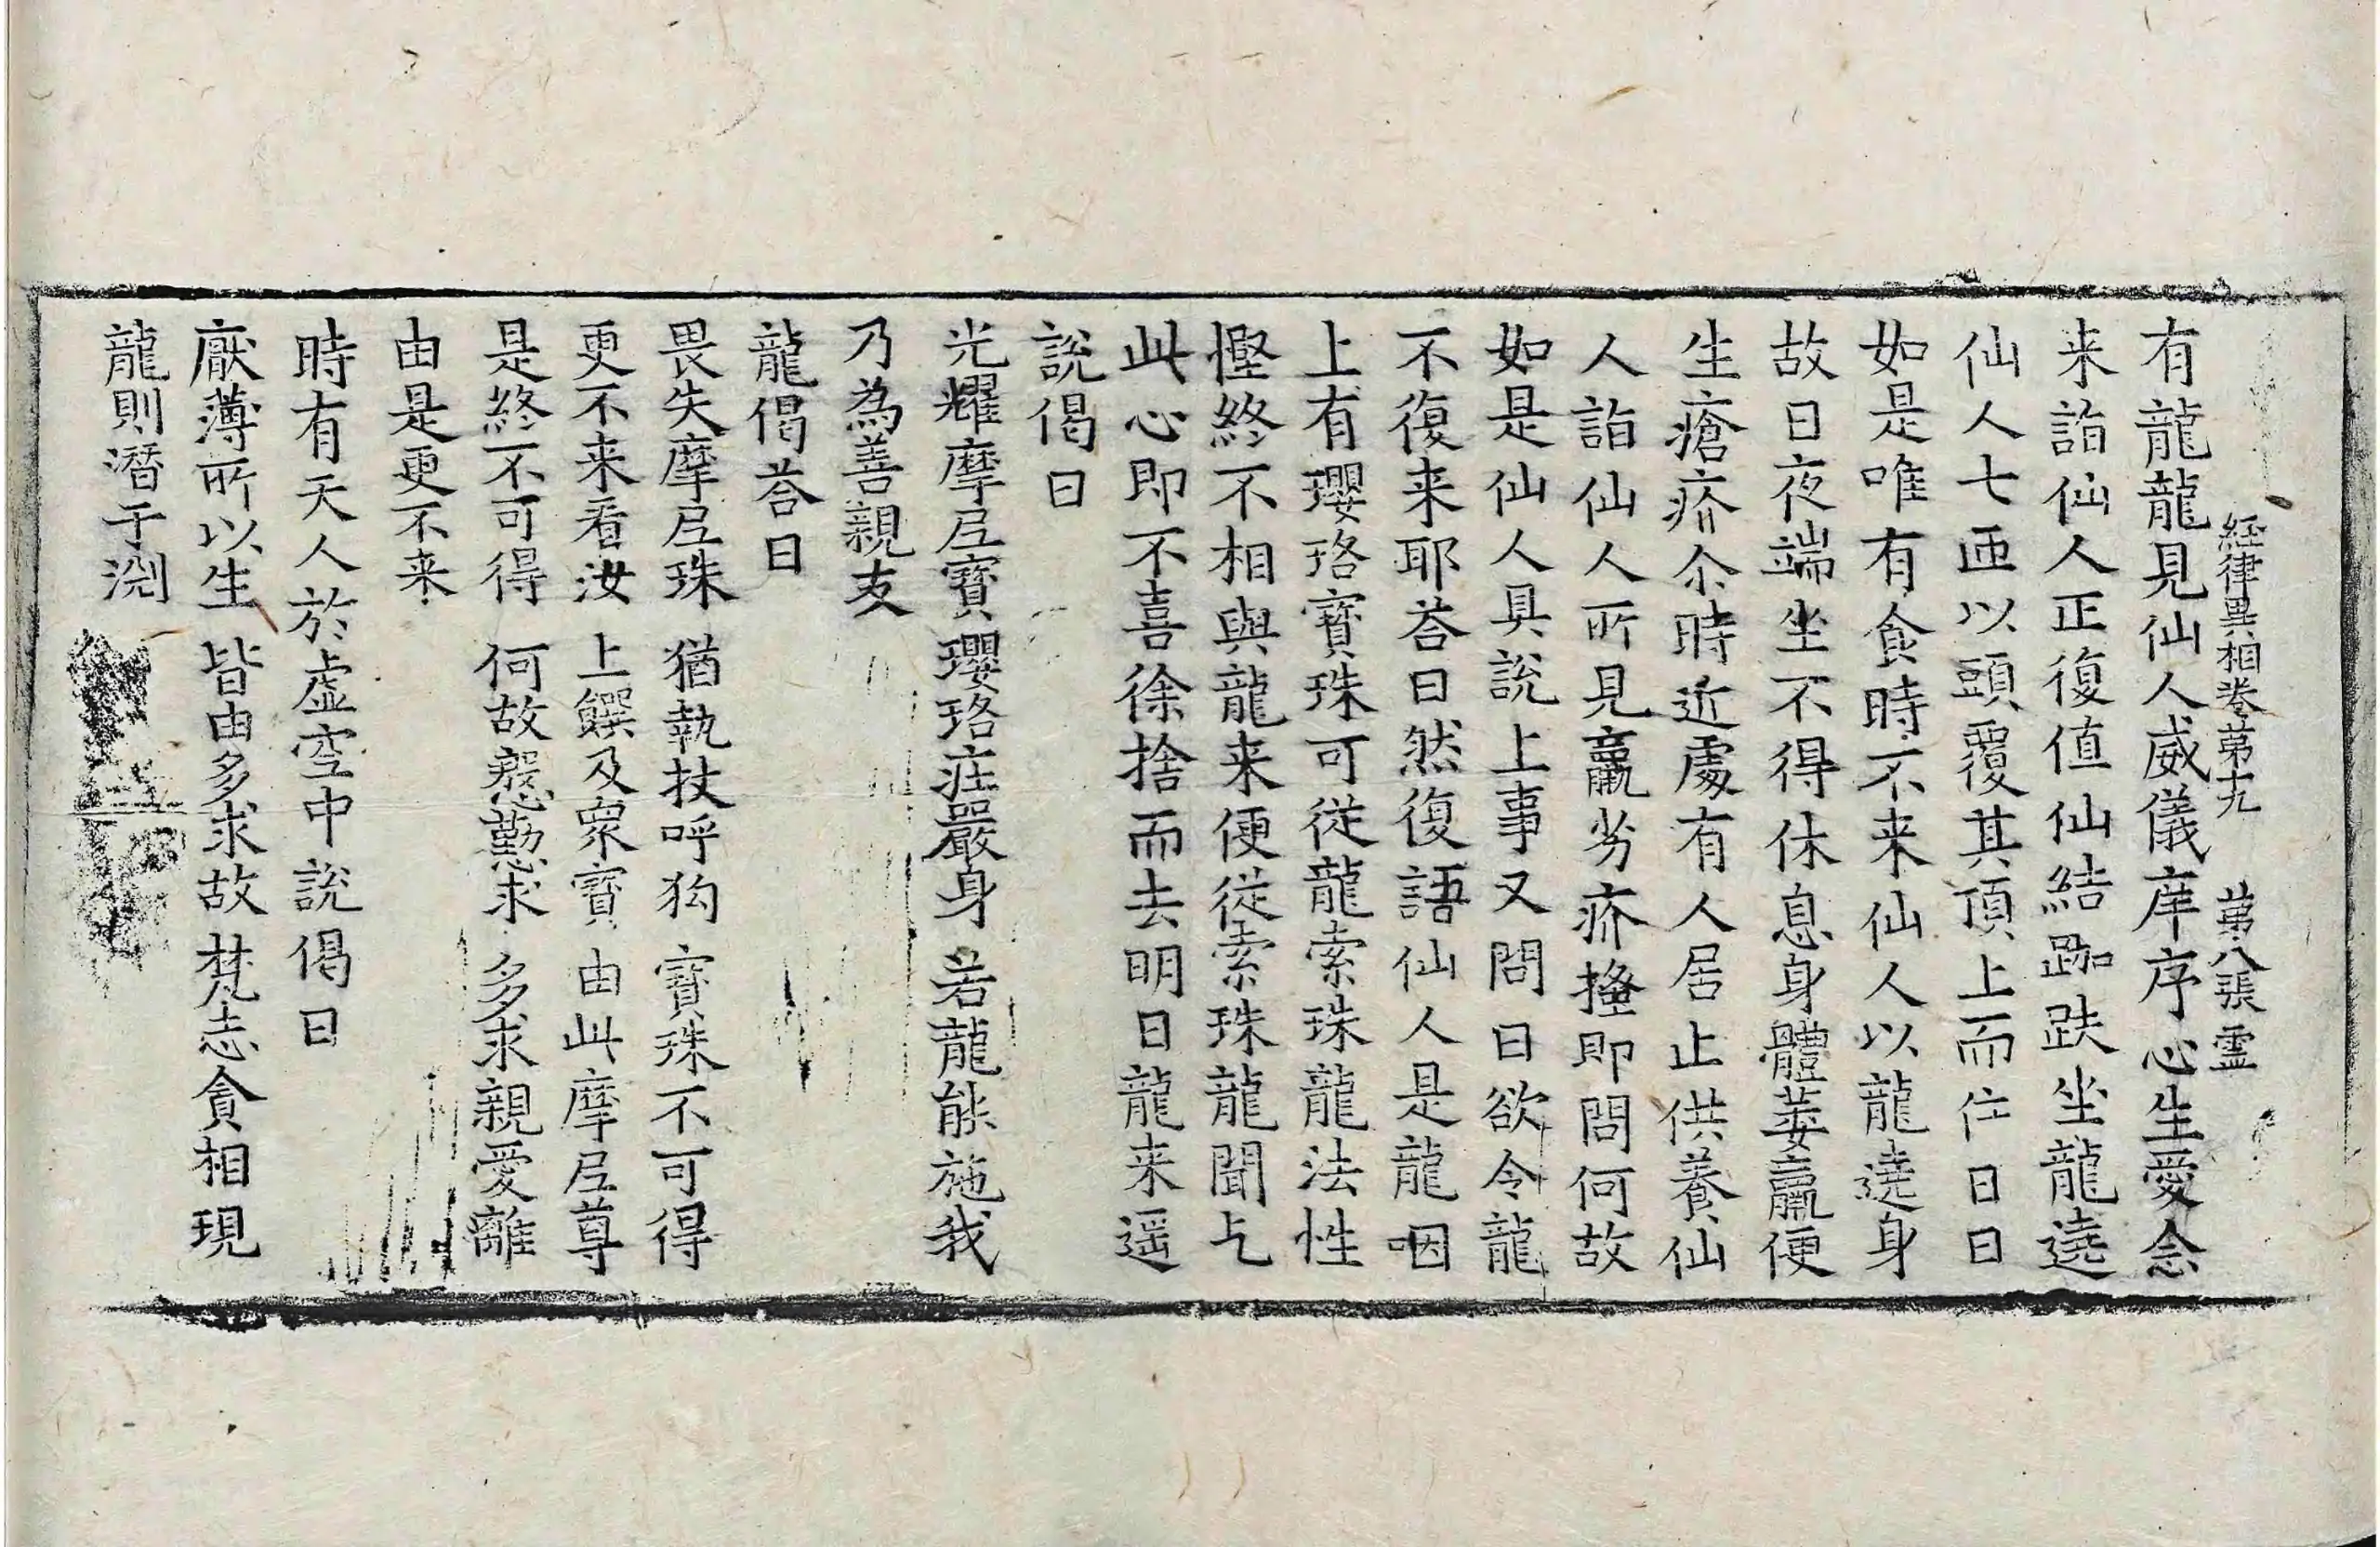 經律異相卷第十九 第八張 霊
有龍龍見仙人威儀庠序心生愛念
来詣仙人正復值仙結跏趺坐龍遶
仙人七迊以頭覆其頂上而住日日
如是唯有食時不来仙人以龍遶身
故日夜端坐不得休息身體萎羸便
生瘡疥尒時近處有人居止供養仙
人詣仙人所見羸劣疥搔即問何故
如是仙人具說上事又問曰欲令龍
不復来耶荅曰然復語仙人是龍咽
上有瓔珞寶珠可從龍索珠龍法性
慳終不相與龍来便從索珠龍聞乞
此心即不喜徐捨而去明日龍来遥
說偈曰
光耀摩尼寶 瓔珞莊嚴身 若龍能施我
乃為善親友
龍偈荅曰
畏失摩尼珠 猶執杖呼狗 寶珠不可得
更不来看汝 上饌及衆寶 由此摩尼尊
是終不可得 何故慇懃求 多求親愛離
由是更不来
時有天人於虛空中說偈曰
厭薄所以生 皆由多求故 梵志貪相現
龍則潛于渕